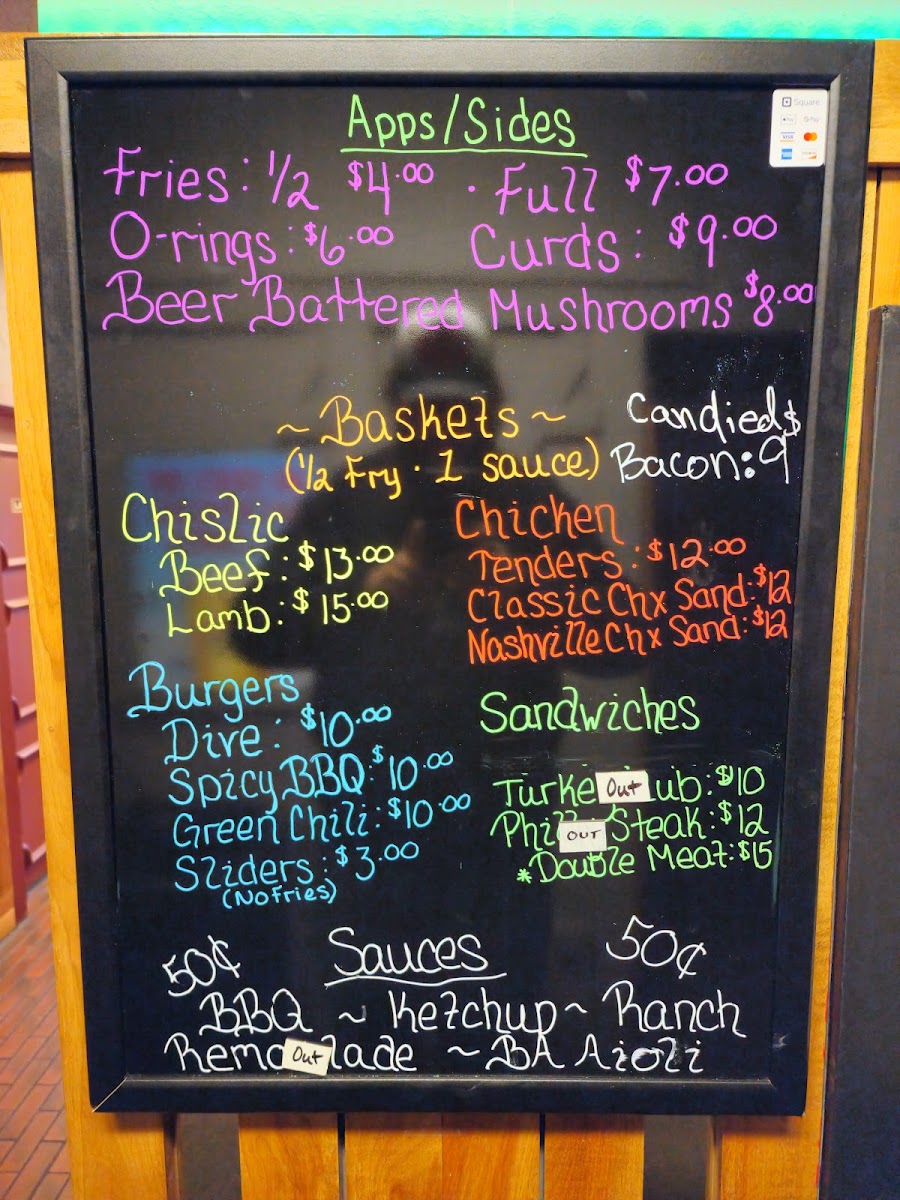 Square
Pay G Pay
VISA
Apps/Sides
Fries: 1/2 $4.00 · Full $7.00
O-rings: $6.00 Curds: $9.00
Beer Battered Mushrooms $8.00
~ Baskets ~
(1/2 Fry · 1 sauce)
Candied $
Bacon: 9
Chislic
Beef: $13.00
Lamb: $15.00
Chicken
Tenders: $12.00
Classic Chx Sand: $12
Nashville Chx Sand: $12
Burgers
Dive: $10.00
Spicy BBQ: $10.00
Green Chili: $10.00
Sliders: $3.00
(No fries)
Sandwiches
Turke Out ub: $10
Phil OUT Steak: $12
*Double Meat: $15
50¢ Sauces 50¢
BBQ ~ Ketchup ~ Ranch
Remo Out lade ~ BA Aioli